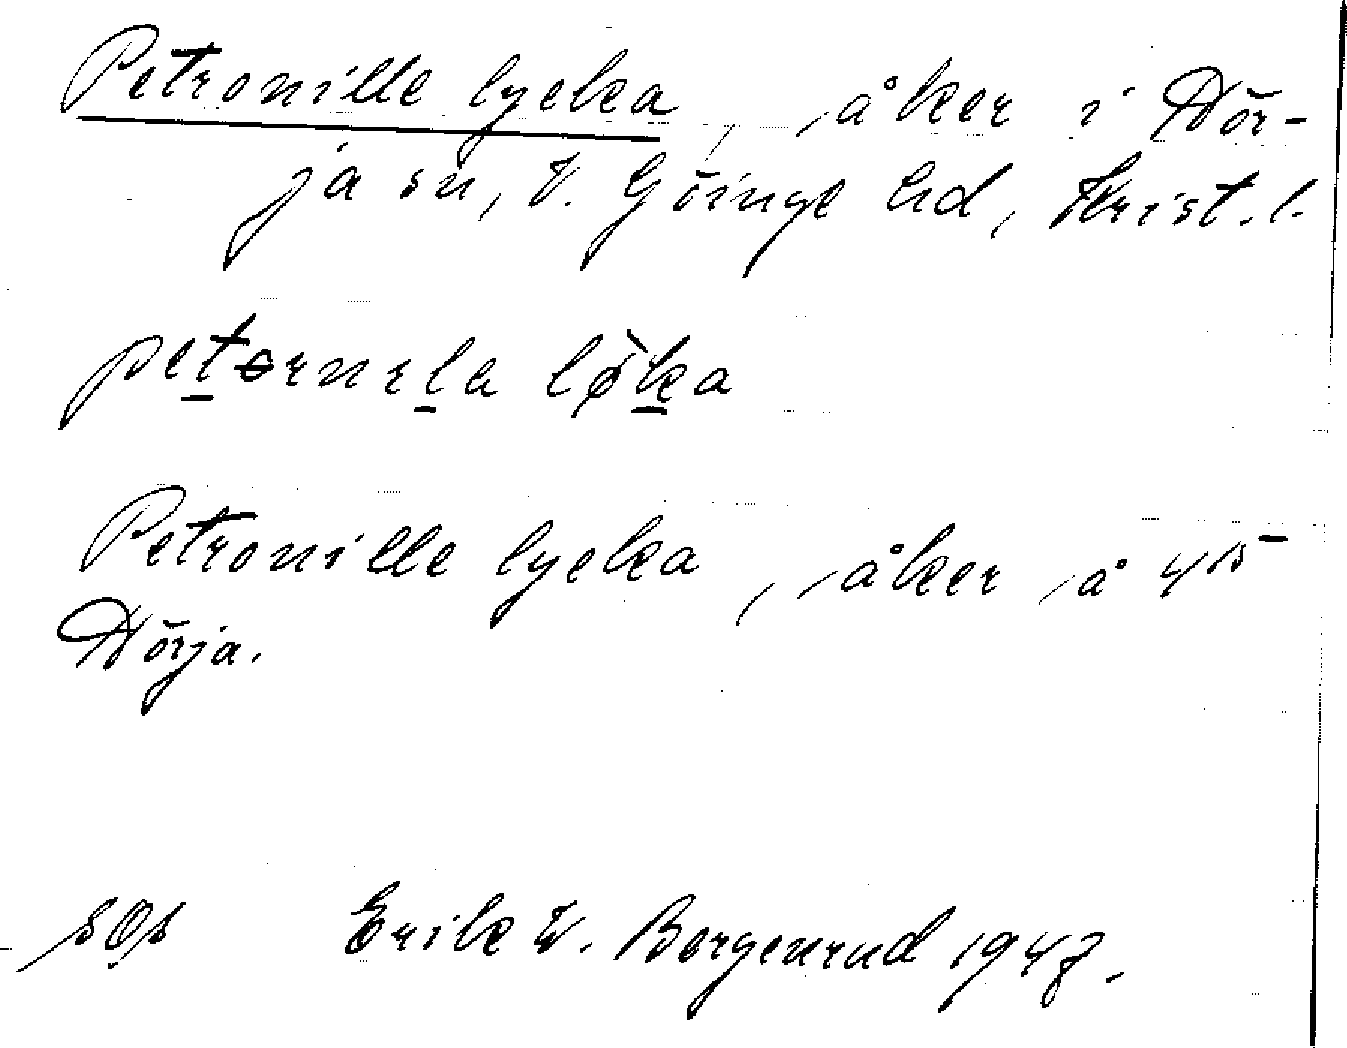 Petronille lycka, åker i Nör-
ja sn, V. Göinge hd, Krist. l.
petərnela løka
Petronille lycka, åker å 4/15
Nörja.
sOs Erik W. Borgenrud 1947.